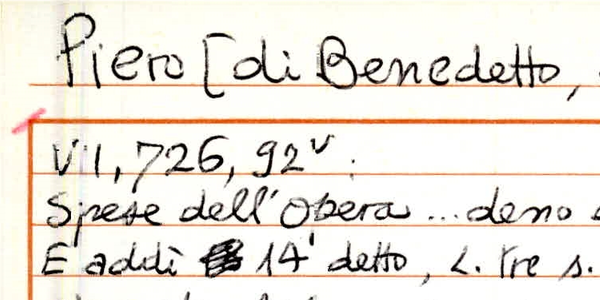 Piero [di Benedetto,
VI, 726, 92v.
Spese dell'Opera ... deno
E addì 14 detto, L. tre s.